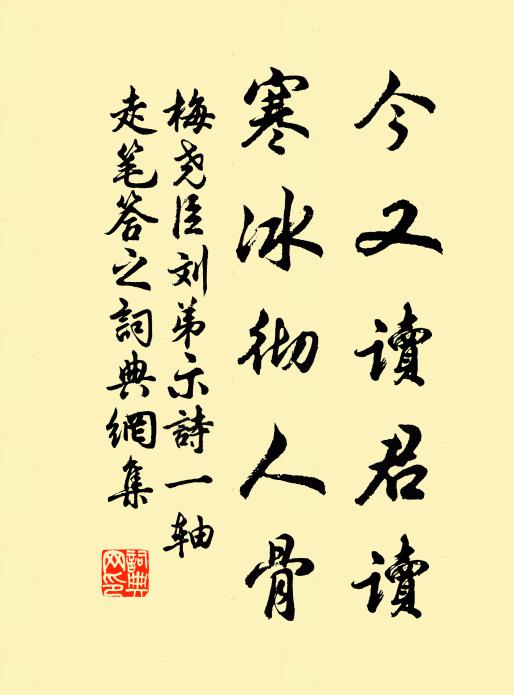 今又讀君讀
寒冰彻人骨
梅尧臣刘弟示詩一轴
走笔答之詞典網集
詞典
网印